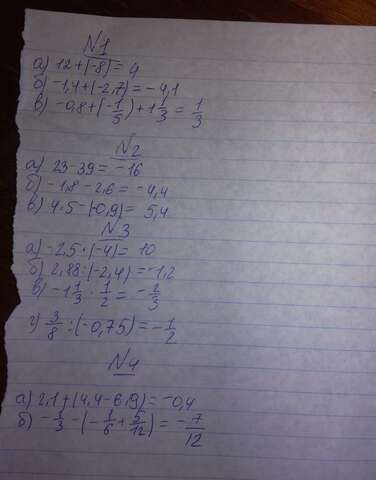 N1
а) 12+(-8)=4
б) -1,4+(-2,7)=-4,1
в) -0,8+(-1/5)+1 1/3=1/3
N2
а) 23-39=-16
б) -1,8-2,6=-4,4
в) 4,5-(-0,9)=5,4
N3
а) -2,5·(-4)=10
б) 2,88:(-2,4)=-1,2
в) -1 1/3·1/2=-2/3
г) 3/8:(-0,75)=-1/2
N4
а) 2,1+(4,4-6,9)=-0,4
б) -1/3-(-1/6+5/12)=-7/12